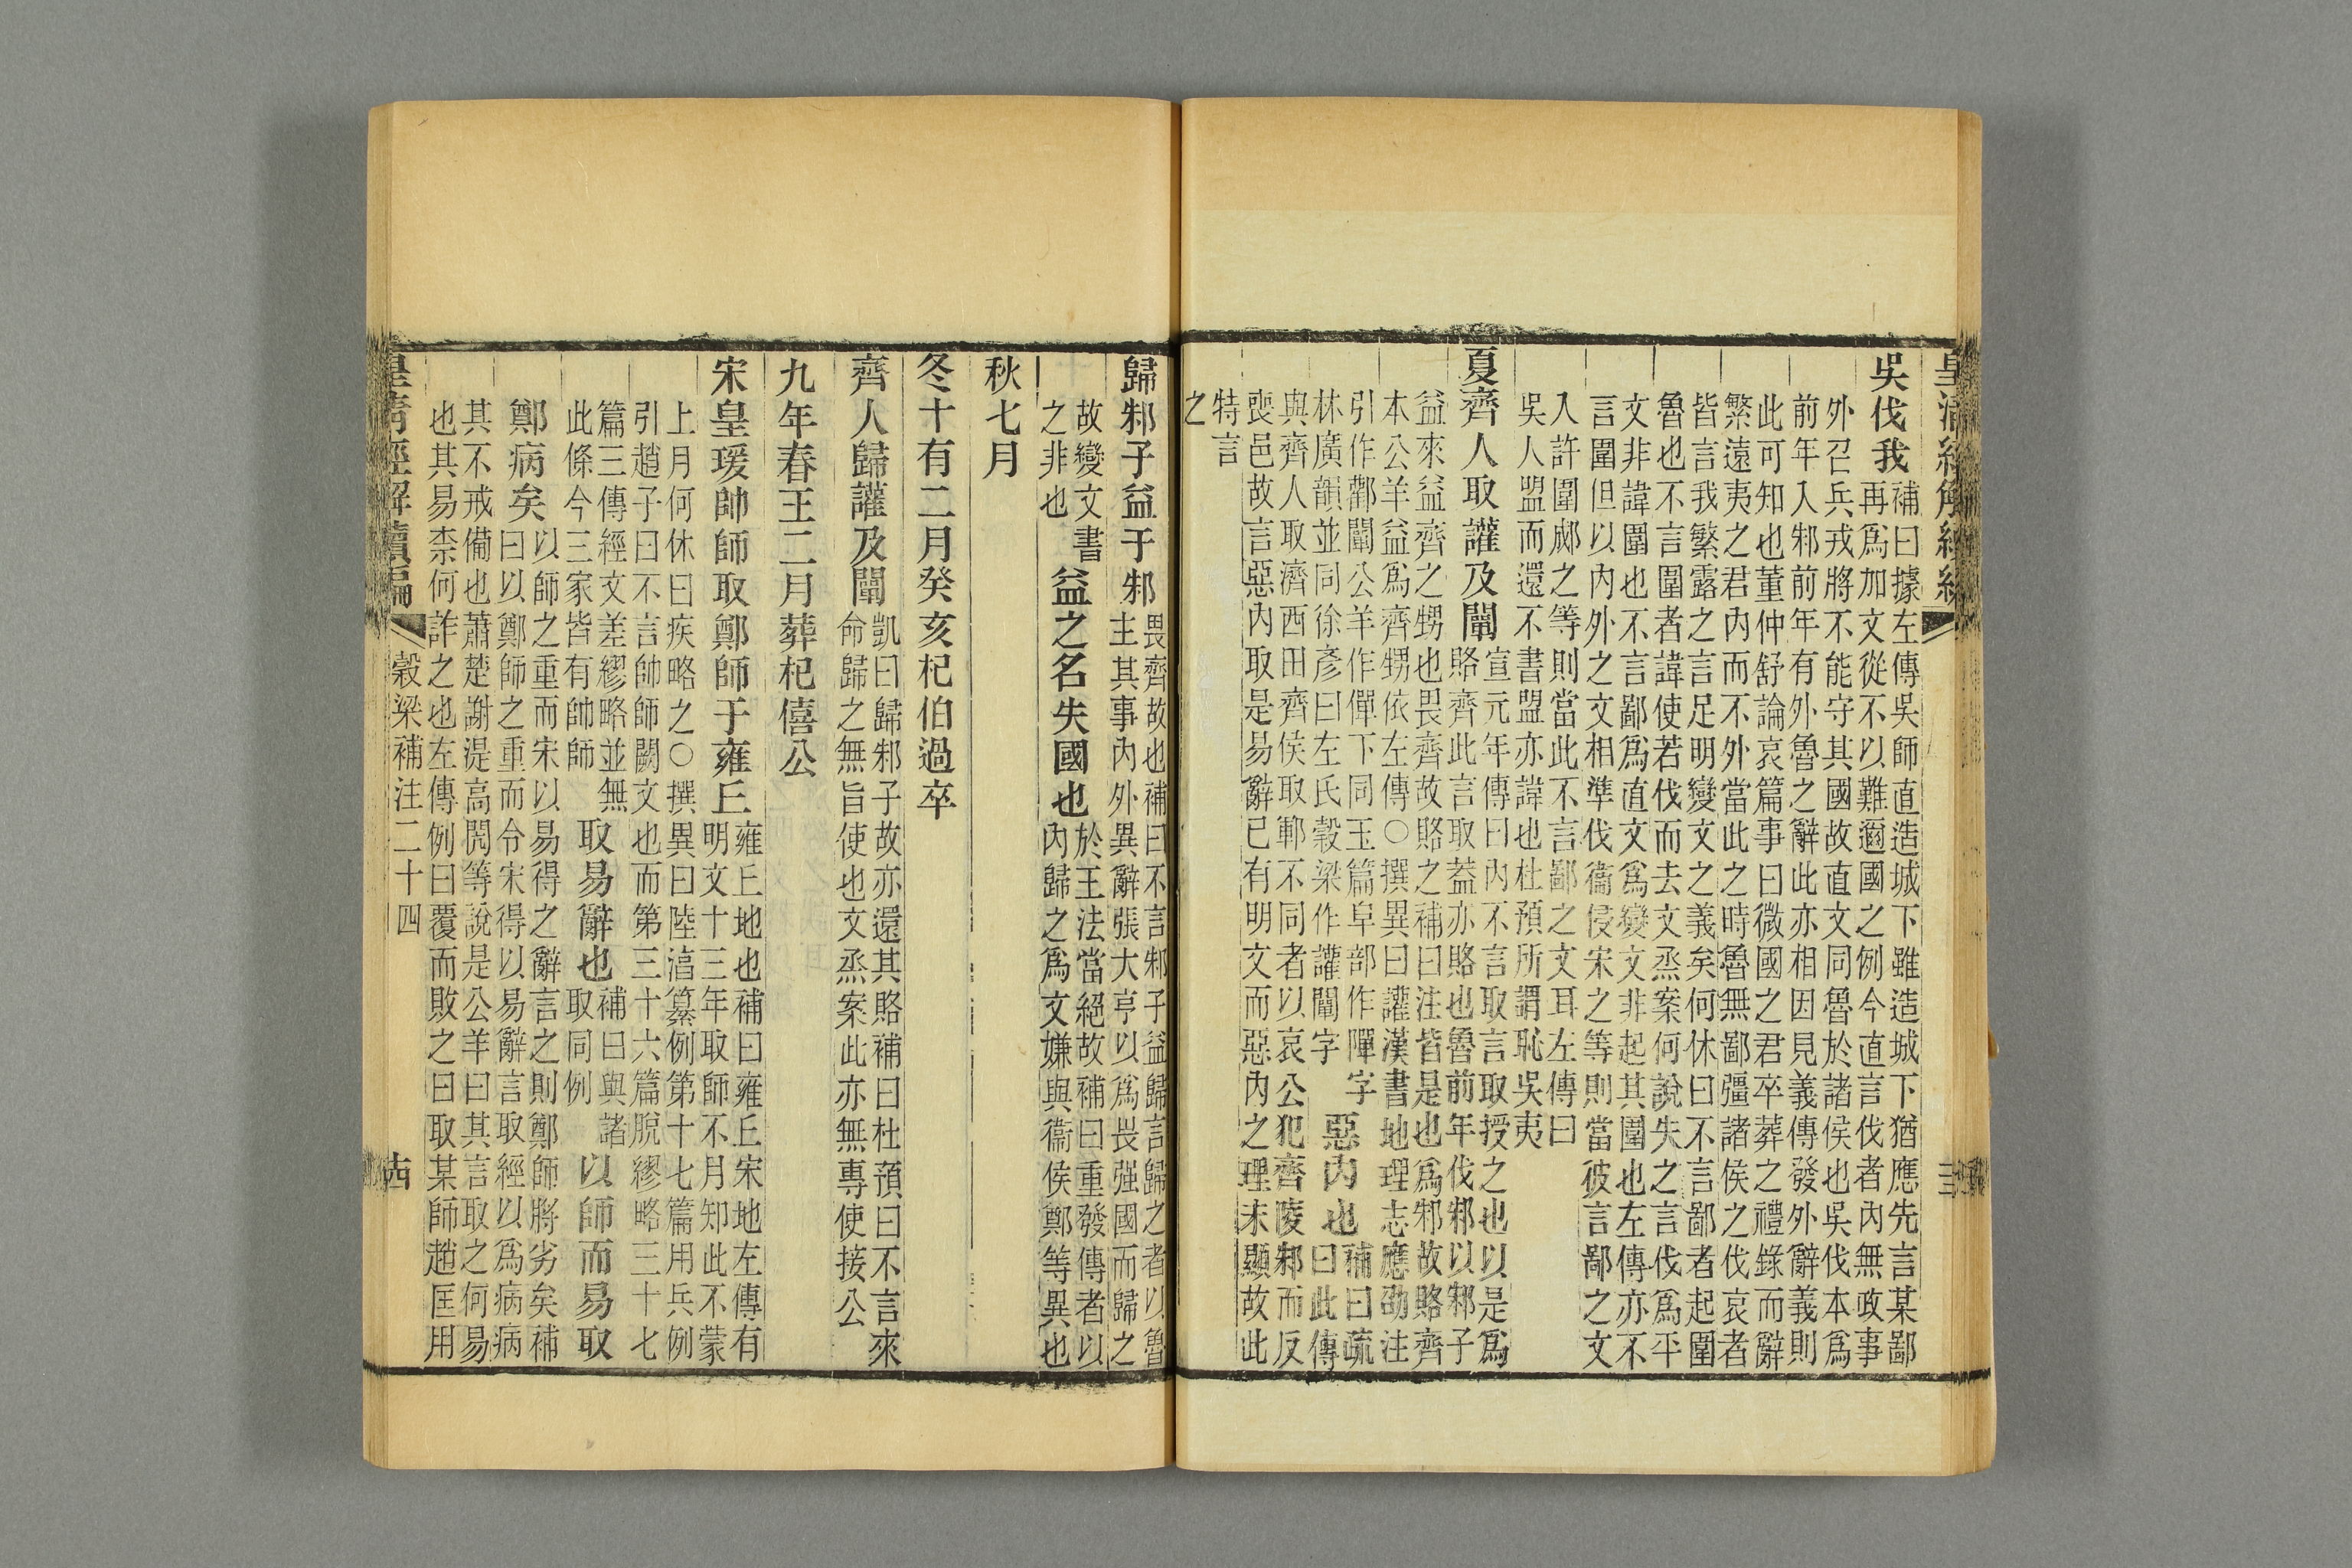 皇清經解續編
三
吳伐我
補曰據左傳吳師直造城下雖造城下猶應先言某鄙
再爲加文從不以難邇國之例今直言伐者內無政事
外召兵戎將不能守其國故直文同魯於諸侯也吳伐本爲
前年入邾前年有外魯之辭此亦相因見義傳發外辭義則
此可知也董仲舒論哀篇事曰微國之君卒葬之禮錄而辭
繁遠夷之君內而不外當此之時魯無鄙彊諸侯之伐哀者
皆言我繁露之言足明變文之義矣何休曰不言鄙者起圍
魯也不言圍者諱使若伐而去文烝案何說失之言伐爲平
文非諱圍也不言鄙爲直文爲變文非起其圍也左傳亦不
言圍但以內外之文相準伐衞侵宋之等則當彼言鄙之文
入許圍郕之等則當此不言鄙之文耳左傳曰
吳人盟而還不書盟亦諱也杜預所謂恥吳夷
夏齊人取讙及闡
宣元年傳曰內不言取言取授之也以是爲
賂齊此言取蓋亦賂也魯前年伐邾以邾子
益來益齊之甥也畏齊故賂之補曰注皆是也爲邾故賂齊
本公羊益爲齊甥依左傳○撰異曰讙漢書地理志應劭注
引作酄闡公羊作僤下同玉篇阜部作字
林廣韻並同徐彥曰左氏穀梁作讙闡字
惡內也
補曰疏
曰此傳
與齊人取濟西田齊侯取鄆不同者以哀公犯齊陵邾而反
喪邑故言惡內取是易辭已有明文而惡內之理未顯故此
特言
之
歸邾子益于邾
畏齊故也補曰不言邾子益歸言歸之者以魯
主其事內外異辭張大亨以爲畏强國而歸之
故變文書
之非也
益之名失國也
於王法當絕故補曰重發傳者以
內歸之爲文嫌與衞侯鄭等異也
秋七月
冬十有二月癸亥杞伯過卒
齊人歸讙及闡
凱曰歸邾子故亦還其賂補曰杜預曰不言來
命歸之無旨使也文烝案此亦無專使接公
九年春王二月葬杞僖公
宋皇瑗帥師取鄭師于雍丘
雍丘地也補曰雍丘宋地左傳有
明文十三年取師不月知此不蒙
上月何休曰疾略之○撰異曰陸湻纂例第十七篇用兵例
引趙子曰不言帥師闕文也而第三十六篇脫繆略三十七
篇三傳經文差繆略並無
此條今三家皆有帥師
取易辭也
補曰與諸
取同例
以師而易取
鄭病矣
以師之重而宋以易得之辭言之則鄭師將劣矣補
曰以鄭師之重而令宋得以易辭言取經以爲病病
其不戒備也蕭楚謝湜高閌等說是公羊曰其言取之何易
也其易柰何詐之也左傳例曰覆而敗之曰取某師趙匡用
皇清經解續編
穀梁補注二十四
十四